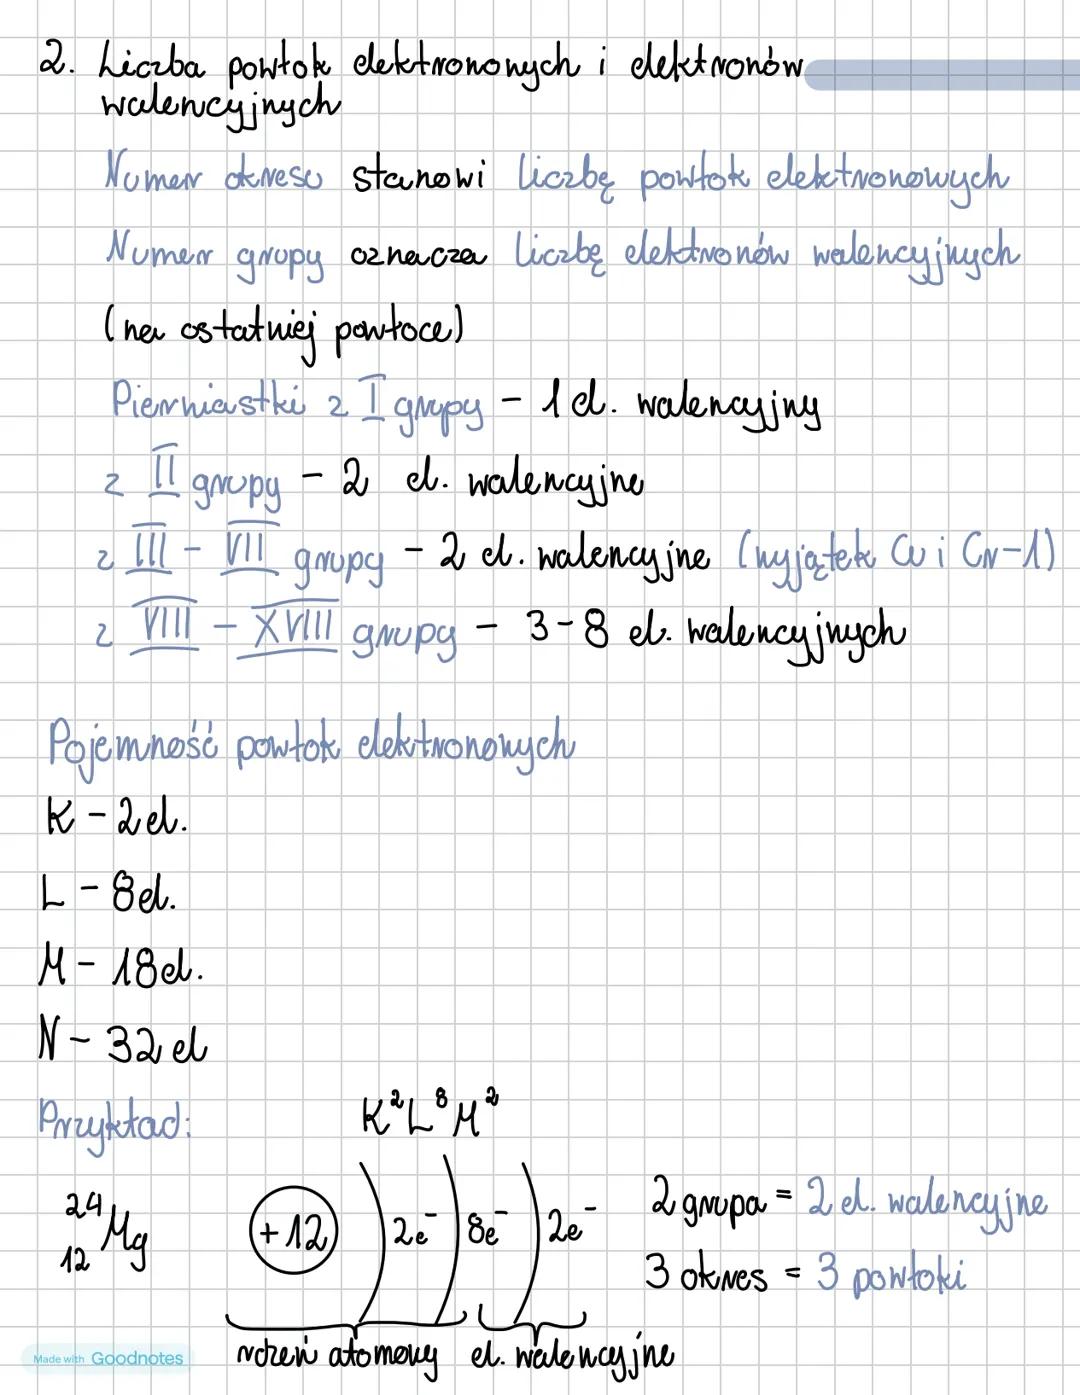 2. Liczba powłok elektrononych i elektronów
walencyjnych
Numer okresu stanowi liczbę powłok elektronowych
Numer grupy oznacza liczbę elektronów walencyjnych
(na ostatniej powłoce)
Pierwiastki z I grupy - 1 el. walencyjny
z II grupy - 2 el. walencyjne
z III - VII grupy - 2 el. walencyjne (wyjątek Cu i Cr-1)
z VIII - XVIII grupy - 3-8 el. walencyjnych
Pojemność powłok elektrononych
K - 2 el.
L - 8 el.
M - 18 el.
N - 32 el
Przykład:
K² L⁸ M²
²⁴₁₂Mg +12 2e⁻ 8e⁻ 2e⁻
2 grupa = 2 el. walencyjne
3 okres = 3 powłoki
rdzeń atomowy el. walencyjne
Made with Goodnotes